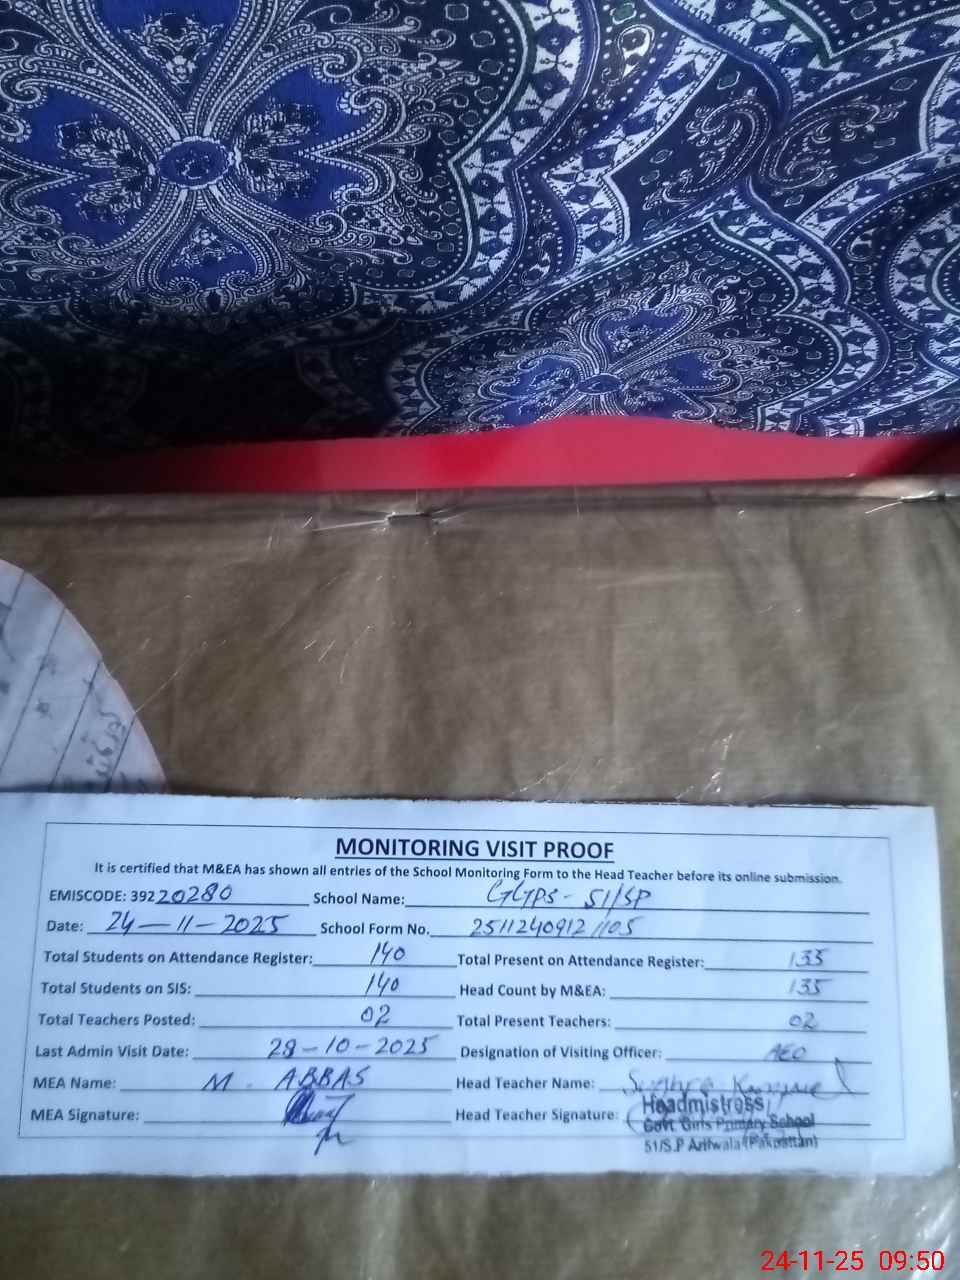 MONITORING VISIT PROOF
It is certified that M&EA has shown all entries of the School Monitoring Form to the Head Teacher before its online submission.
EMISCODE: 39220280 School Name: GGPS - 51/SP
Date: 24-11-2025 School Form No. 25112409121105
Total Students on Attendance Register: 140 Total Present on Attendance Register: 135
Total Students on SIS: 140 Head Count by M&EA: 135
Total Teachers Posted: 02 Total Present Teachers: 02
Last Admin Visit Date: 28-10-2025 Designation of Visiting Officer: AEO
MEA Name: M. ABBAS Head Teacher Name:
MEA Signature: Head Teacher Signature:
Headmistress
Govt. Girls Primary School
51/S.P Arifwala (Pakpattan)
24-11-25 09:50